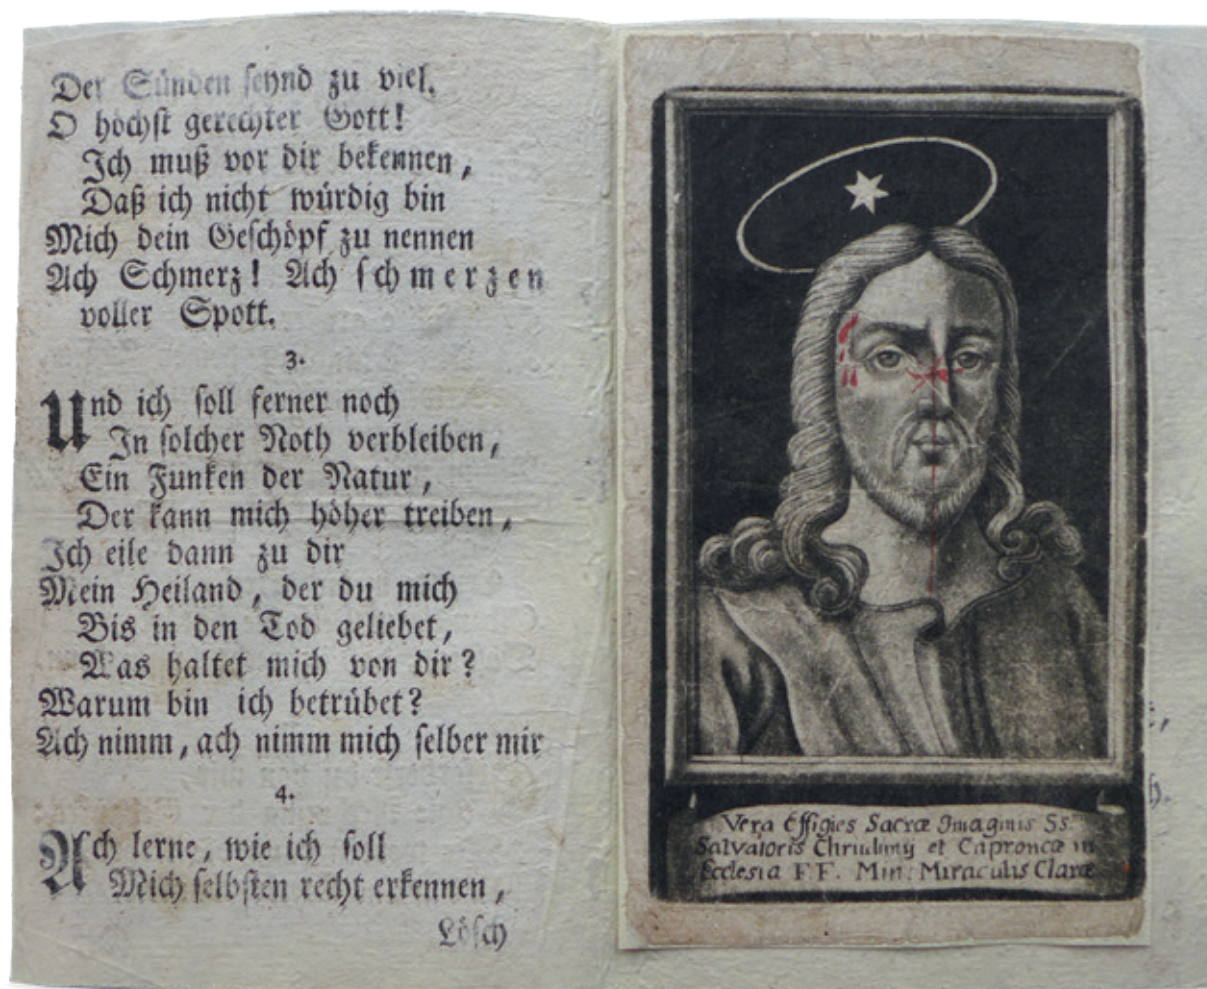 Der Sünden seynd zu viel.
O höchst gerechter Gott!
Ich muß vor dir bekennen,
Daß ich nicht würdig bin
Mich dein Geschöpf zu nennen
Ach Schmerz! Ach schmerzen
voller Spott.
3.
Und ich soll ferner noch
In solcher Noth verbleiben,
Ein Funken der Natur,
Der kann mich höher treiben,
Ich eile dann zu dir
Mein Heiland, der du mich
Bis in den Tod geliebet,
Was haltet mich von dir?
Warum bin ich betrübet?
Ach nimm, ach nimm mich selber mir
4.
Ach lerne, wie ich soll
Mich selbsten recht erkennen,
Lösch
Vera Effigies Sacræ Imaginis Ss.
Salvatoris Chrudimij et Caproncæ in
Ecclesia F.F. Min: Miraculis Claræ